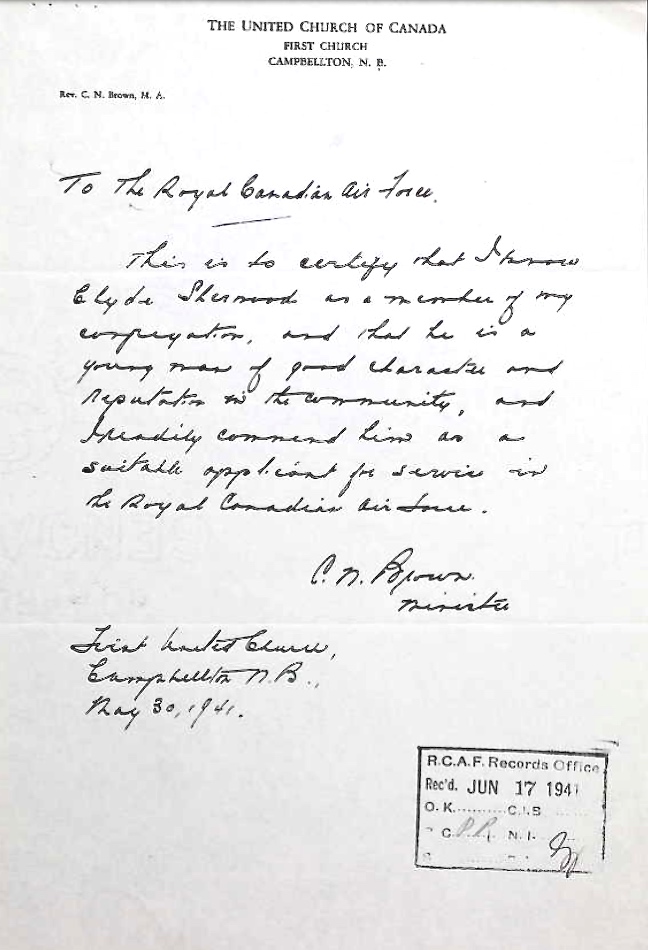 THE UNITED CHURCH OF CANADA
FIRST CHURCH
CAMPBELLTON, N. B.
Rev. C. N. Brown, M. A.
To The Royal Canadian Air Force.
This is to certify that I know
Clyde Sherwood as a member of my
congregation, and that he is a
young man of good character and
reputation in the community, and
I readily commend him as a
suitable applicant for service in
the Royal Canadian Air Force.
C. N. Brown.
Minister
First United Church,
Campbellton N.B.,
May 30, 1941.
R.C.A.F. Records Office
Rec'd. JUN 17 1941
O.K..........C.I.B
C. P.P. N.I.